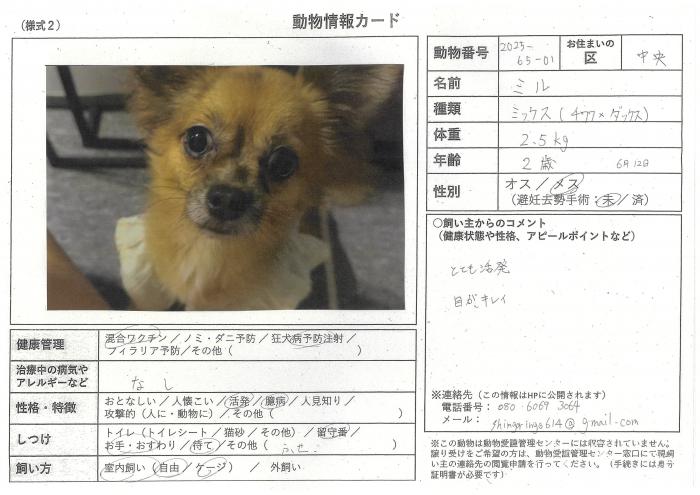 （様式２）
動物情報カード
動物番号 2023-65-01 お住まいの区 中央
名前 ミル
種類 ミックス（チワワ×ダックス）
体重 2.5kg
年齢 2歳 6月12日
性別 オス／メス
（避妊去勢手術・未／済）
○飼い主からのコメント
（健康状態や性格、アピールポイントなど）
とても活発
目がキレイ
※連絡先（この情報はHPに公開されます）
電話番号： 080-6069 3064
メール： @gmail.com
※この動物は動物愛護管理センターには収容されていません。
譲り受けをご希望の方は、動物愛護管理センター窓口にて飼
い主の連絡先の閲覧申請を行ってください。（手続きには身分
証明書が必要です）
健康管理 混合ワクチン／ノミ・ダニ予防／狂犬病予防注射／
フィラリア予防／その他（ ）
治療中の病気や
アレルギーなど なし
性格・特徴 おとなしい／人懐こい／活発／臆病／人見知り／
攻撃的（人に・動物に）／その他（ ）
しつけ トイレ（トイレシート／猫砂／その他）／留守番／
お手・おすわり／待て／その他（ ふせ ）
飼い方 室内飼い（自由／ケージ） ／ 外飼い